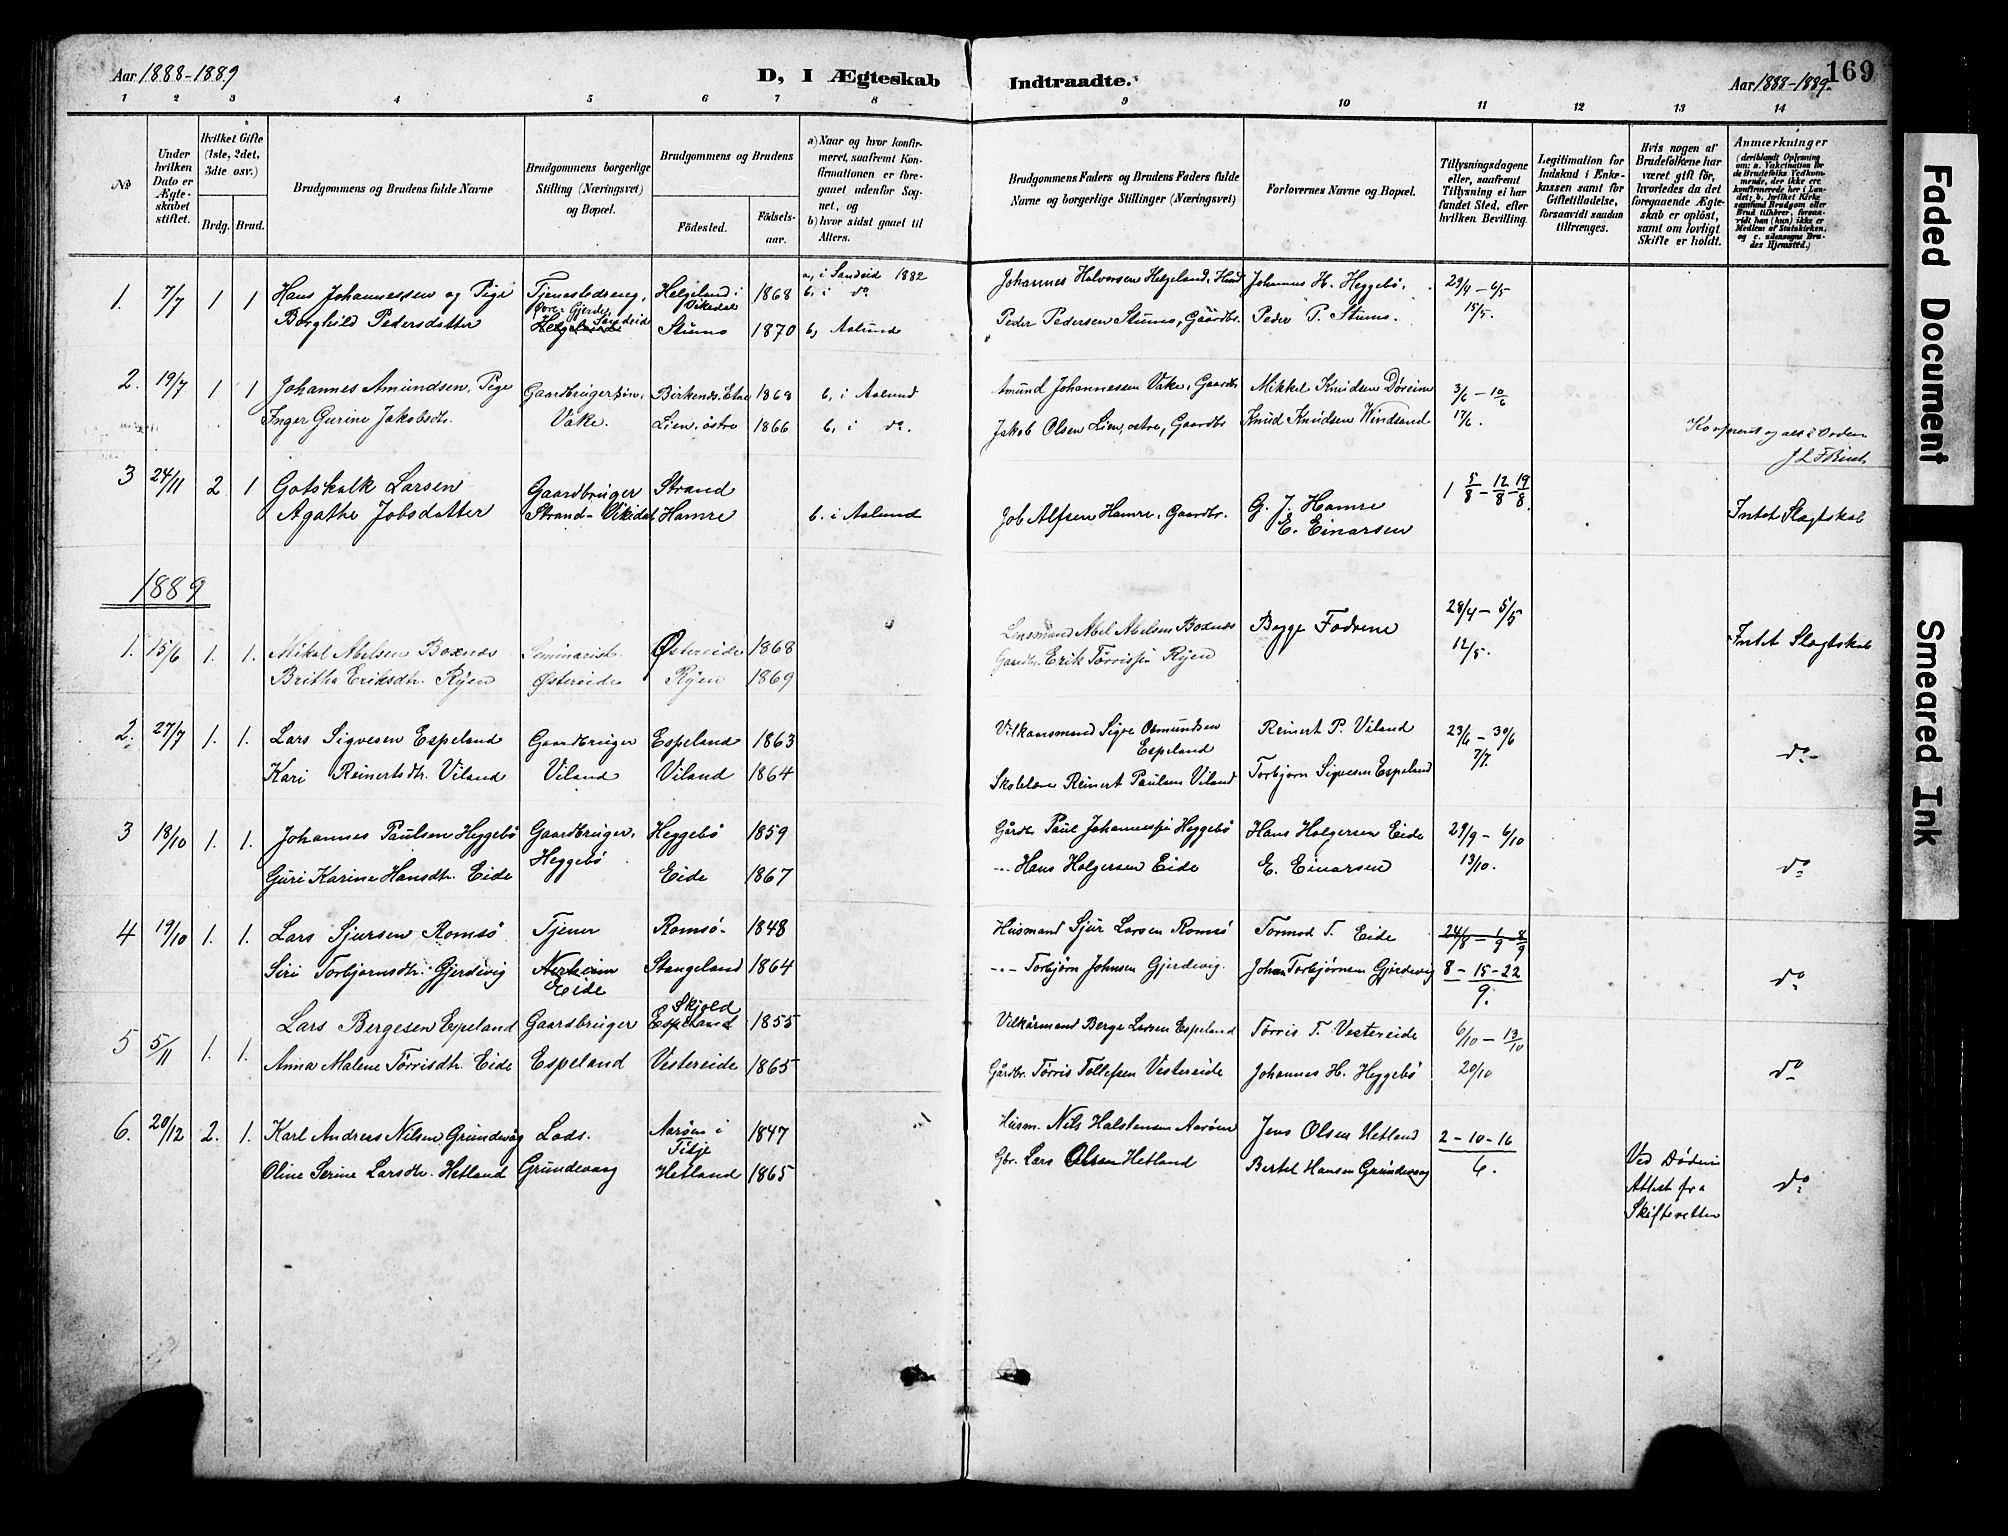 Aar 1888-1889
D, I Ægteskab Indtraadte.
Aar 1888-1889.
169
1 2 3 4 5 6 7 8 9 10 11 12 13 14
№
Under hvilken Dato er Ægteskabet stiftet.
Hvilket Gifte (1ste, 2det, 3die osv.)
Brdg. Brud.
Brudgommens og Brudens fulde Navne
Brudgommens borgerlige Stilling (Næringsvei) og Bopæl.
Brudgommens og Brudens
Födested.
Födselsaar.
a) Naar og hvor konfirmeret, saafremt Konfirmationen er foregaaet udenfor Sognet, og
b) hvor sidst gaaet til Alters.
Brudgommens Faders og Brudens Faders fulde Navne og borgerlige Stillinger (Næringsvei)
Forlovernes Navne og Bopæl.
Tillysningsdagene eller, saafremt Tillysning ei har fundet Sted, efter hvilken Bevilling.
Legitimation for Indskud i Enkekassen samt for Giftetilladelse, forsaavidt saadan tiltrænges.
Hvis nogen af Brudefolkene har været gift før, hvorledes da det foregaaende Ægteskab er opløst, samt om lovligt Skifte er holdt.
Anmærkninger
(deriblandt Oplysning om: a. Vakcination for de Brudefolks Vedkommende, der ikke ere konfirmerede her i Landet; b. hvilket Kirkesamfund Brudgom eller Brud tilhører, forsaavidt han (hun) ikke er Medlem af Statskirken, og c. udensogns Brudes Hjemsted.)
1. 7/7 1 1 Hans Johannessen og Pige Helgeland i Vikedal 1868 a, i Sandeid 1882 b, i do Johannes Halvorsen Helgeland, Johannes H. Heggebö, 29/4 - 6/5
Borghild Pedersdatter Øvre-Gjerde, Sandeid Stumo 1870 b, Aalund Peder Pedersen Stumo, Gaardbr. Peder P. Stumo. 15/5.
2. 19/7 1 1 Johannes Amundsen, Pige Gaardbrugersön, Birkenes, Etne 1868 b, i Aalund Amund Johannessen Vake, Gaardbr. Mikkel Knudsen 3/6 - 10/6
Inger Gurine Jakobsdtr. Vake. Lien, östre 1866 b, i do. Jakob Olsen Lien, östre, Gaardbr. Knud Knudsen Windsand 17/6.
Konfereret og alt i Orden
3 24/11 2 1 Gotskalk Larsen Gaardbruger Strand
Agathe Jobsdatter Strand - Vikedal Hamre b. i Aalund Job Alfsen Hamre, Gaardbr. G. J. Hamre E. Einarsen 5/8 - 12/8 - 19/8. Intet Slagtskab
1889
1. 15/6 1. 1. Mikal Abelsen Boxnæs Seminarist. Østereide 1868 Lensmand Abel Abelsen Boxnæs Begge Fædrene 28/4 - 5/5 Intet Slagtskab
Britha Eriksdtr. Ryen Østereide Ryen 1869 Gaardbr. Erik Tørrissen Ryen 12/5.
2. 27/7 1. 1. Lars Sigvesen Espeland Gaardbruger Espeland 1863 Vilkaarsmand Sigve Osmundsen Espeland Reinert P. Viland 23/6 - 30/6 do
Kari Reinertsdtr. Viland Viland Viland 1864 Skolelærer Reinert Paulsen Viland Torbjørn Sigvesen Espeland 7/7.
3 18/10 1. 1. Johannes Paulsen Heggebö Gaardbruger, Heggebö 1859 Gårdbr. Paul Johannessen Heggebö Hans Holgersen Eide 29/9 - 6/10
Guri Karine Hansdtr. Eide Heggebö Eide 1867 Hans Holgersen Eide E. Einarsen 13/10. do
4 19/10 1. 1. Lars Sjursen Romsö Tjener Romsö. 1848 Husmand Sjur Larsen Romsö Tormod T. Eide 24/8 - 1/9 - 8/9
Siri Torbjørnsdtr. Gjerdevig Nerheim Eide Stangeland Skjold 1864 Torbjörn Johnsen Gjerdevig. Johan Torbjørnsen Gjerdevig 8 - 15 - 22 / 9. do
5 5/11 1. 1. Lars Bergesen Espeland Gaardbruger Espeland 1855 Vilkårmand Berge Larsen Espeland Tørris T. Vestereide 6/10 - 13/10
Anna Malene Tørrisdtr. Eide Espeland Vestereide 1865 Gårdbr. Tørris Tollefsen Vestereide Johannes H. Heggebö 20/10 do
6. 20/12 2. 1. Karl Andreas Nilsen Grundevåg Lods. Aarøen i 1847 Husm. Nils Halstensen Aarøen Jens Olsen Hetland 2 - 10 - 16 / 6.
Oline Serine Larsdtr. Hetland Grundevaag Hetland 1865 Gbr. Lars Olsen Hetland Bertel Hansen Grundevaag Ved Døden Attest fra Skifteretten do
Faded Document
Smeared Ink